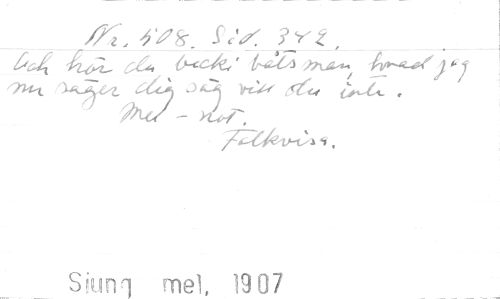 Nr. 508. Sid. 342.
Och hör du båtsman, hvad jag
nu säger dig säg vill du inte.
Mel - not.
Folkvisa.
Sjung mel, 1907